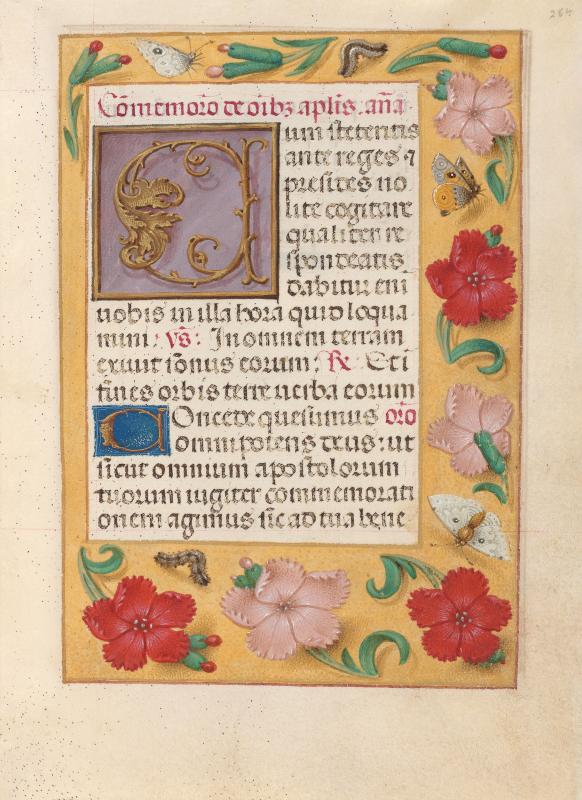 264
Cōmemoro de oībꝫ aplis. aña
Cum steteritis
ante reges ⁊
presides no
lite cogitare
qualiter re
spondeatis
dabitur eni
uobis in illa hora quid loqua
mini: vs̄: In omnem terram
exiuit sonus eorum: ℟ Et i
fines orbis terre uerba eorum
Concede quesumus oro
omnipotens deus: ut
sicut omnium apostolorum
tuorum iugiter commemorati
onem agimus sic ad tua bene